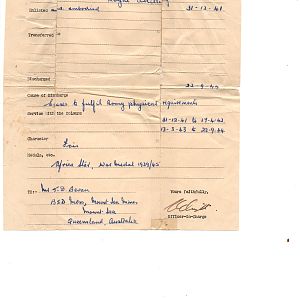 Royal Artillery
Enlisted and embodied 31-12-41
Transferred
Discharged 22-9-44
Cause of Discharge
Ceases to fulfil Army physical requirements
Service with the Colours
31-12-41 to 17-4-42
12-3-43 to 22-9-44
Character
Medals, etc.
Africa Star, War Medal 1939/45
TO: Mr J.D. Bevan
BSD Mess, Mount Isa Mines
Mount Isa
Queensland, Australia
Yours faithfully,
Officer-in-Charge